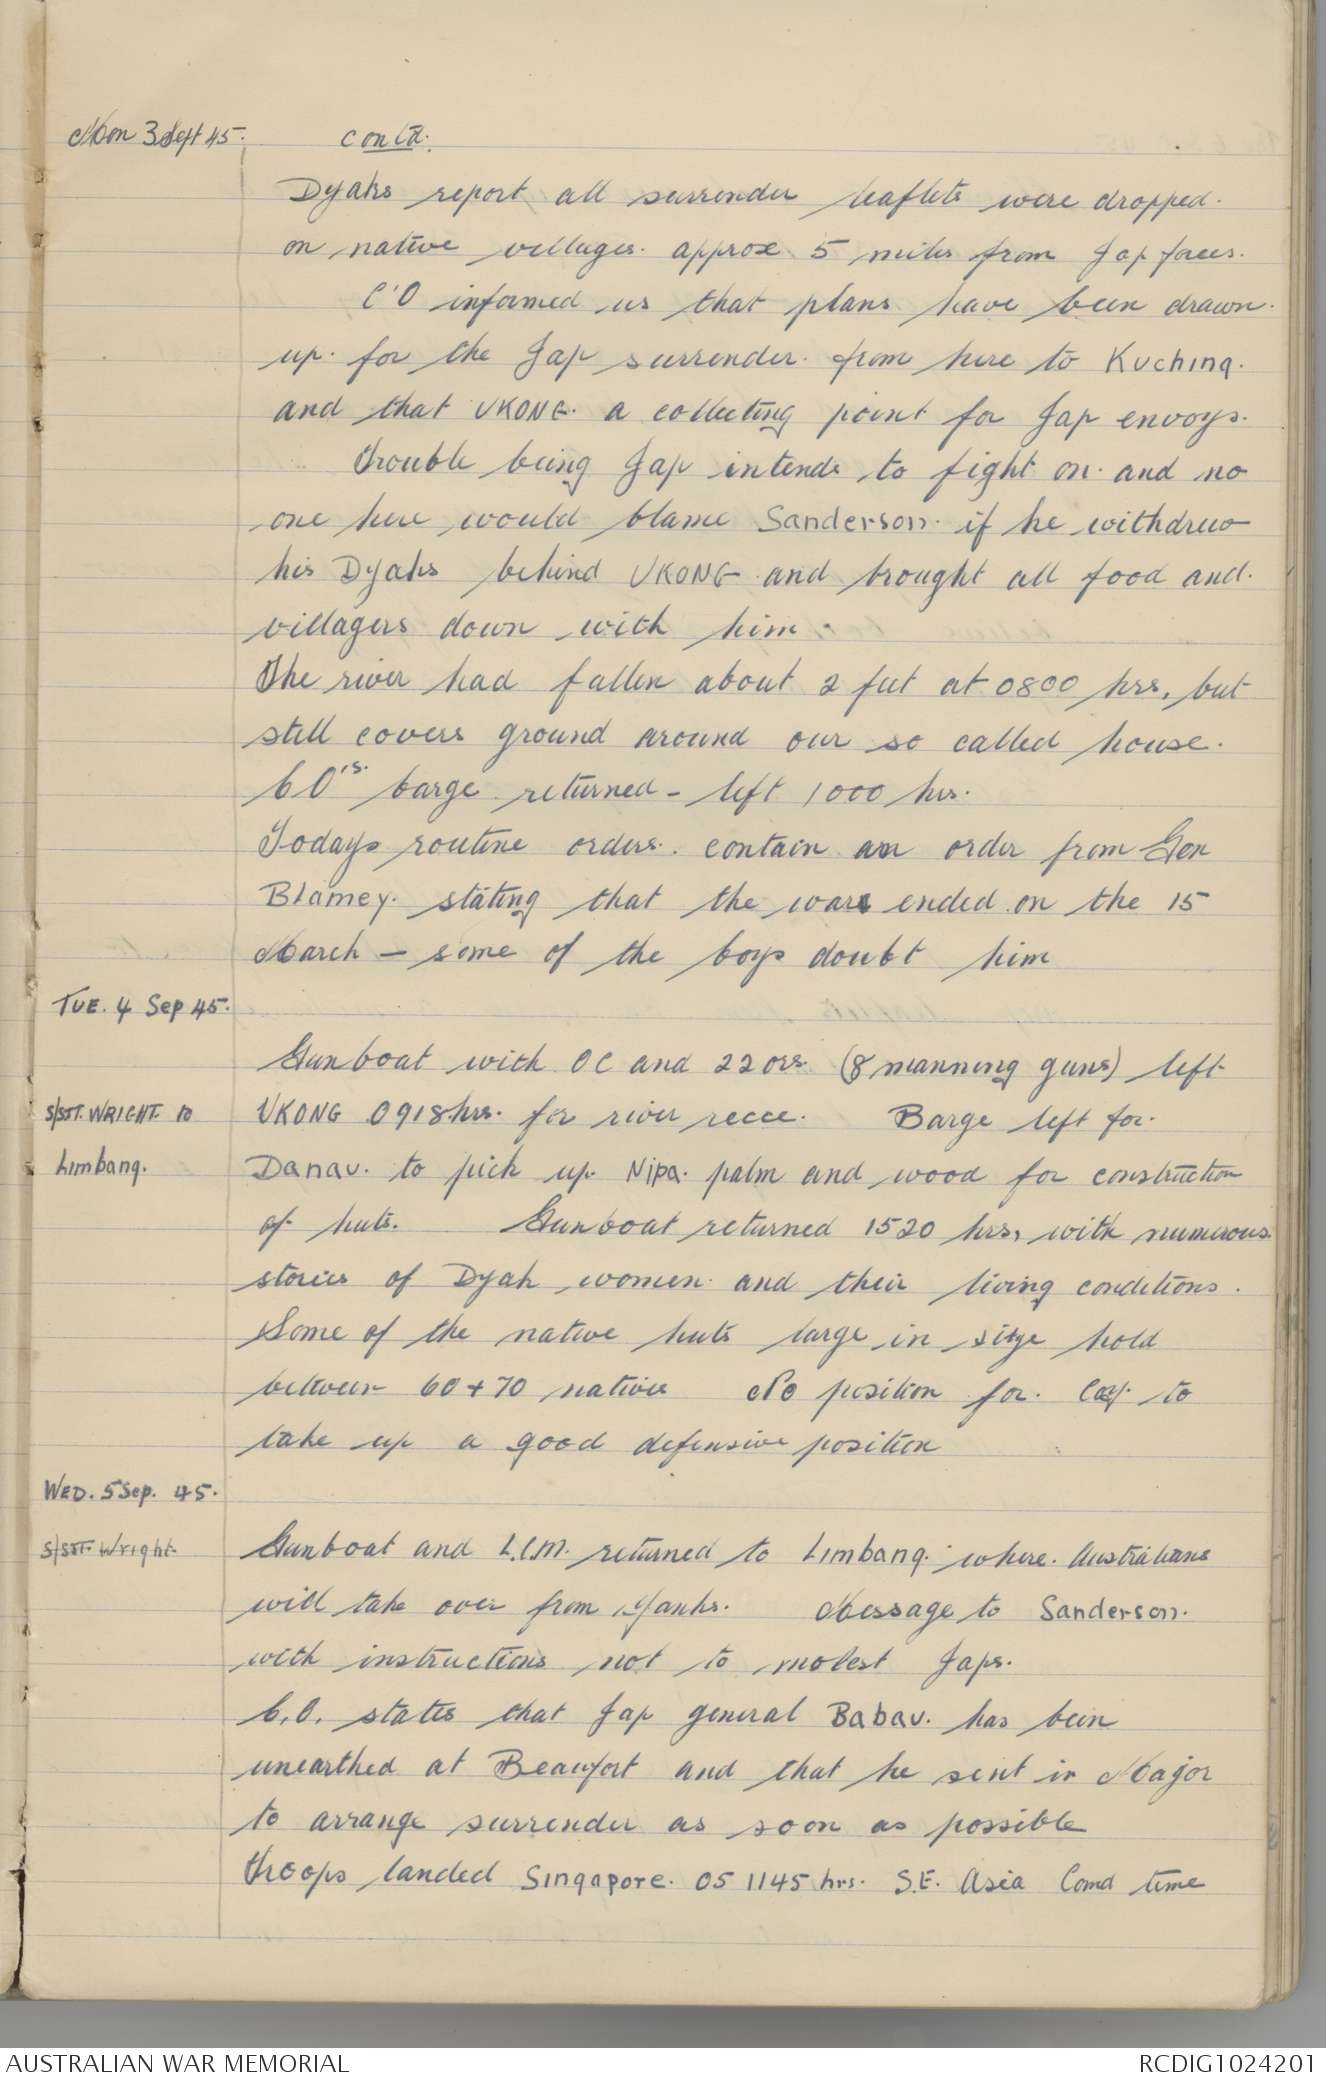 Mon 3 Sept 45. Contd.
Dyaks report all surrender leaflets were dropped.
on native villages. approx. 5 miles from Jap forces.
C'O informed us that plans have been drawn.
up. for the Jap surrender. from here to Kuching.
and that UKONG. a collecting point for Jap envoys.
Trouble being Jap intends to fight on. and no
one here would blame Sanderson. if he withdrew
his Dyaks behind UKONG and brought all food and.
villagers down with him.
The river had fallen about 2 feet at 0800 hrs, but
still covers ground around our so called house.
CO's. barge returned - left 1000 hrs.
Todays routine orders. contain an order from Gen
Blamey. stating that the war ended on the 15
March - some of the boys doubt him
TUE. 4 Sep 45.
Gunboat with OC and 22 ors. (8 manning guns) left
S/SJT. WRIGHT. to UKONG 0918 hrs. for river recce. Barge left for.
Limbang. Danau. to pick up Nipa. palm and wood for construction
of huts. Gunboat returned 1520 hrs, with numerous
stories of Dyak women. and their living conditions.
Some of the native huts large in size hold
between 60 + 70 natives No position for. Coy. to
take up a good defensive position
WED. 5 Sep. 45.
S/SJT. Wright. Gunboat and L.C.M. returned to Limbang. where. Australians
will take over from Yanks. Message to Sanderson.
with instructions not to molest Japs.
C.O. states that Jap general Babau. has been
unearthed at Beaufort and that he sent in Major
to arrange surrender as soon as possible
Troops landed Singapore. 05 1145 hrs. S.E. Asia Comd time
AUSTRALIAN WAR MEMORIAL RCDIG1024201